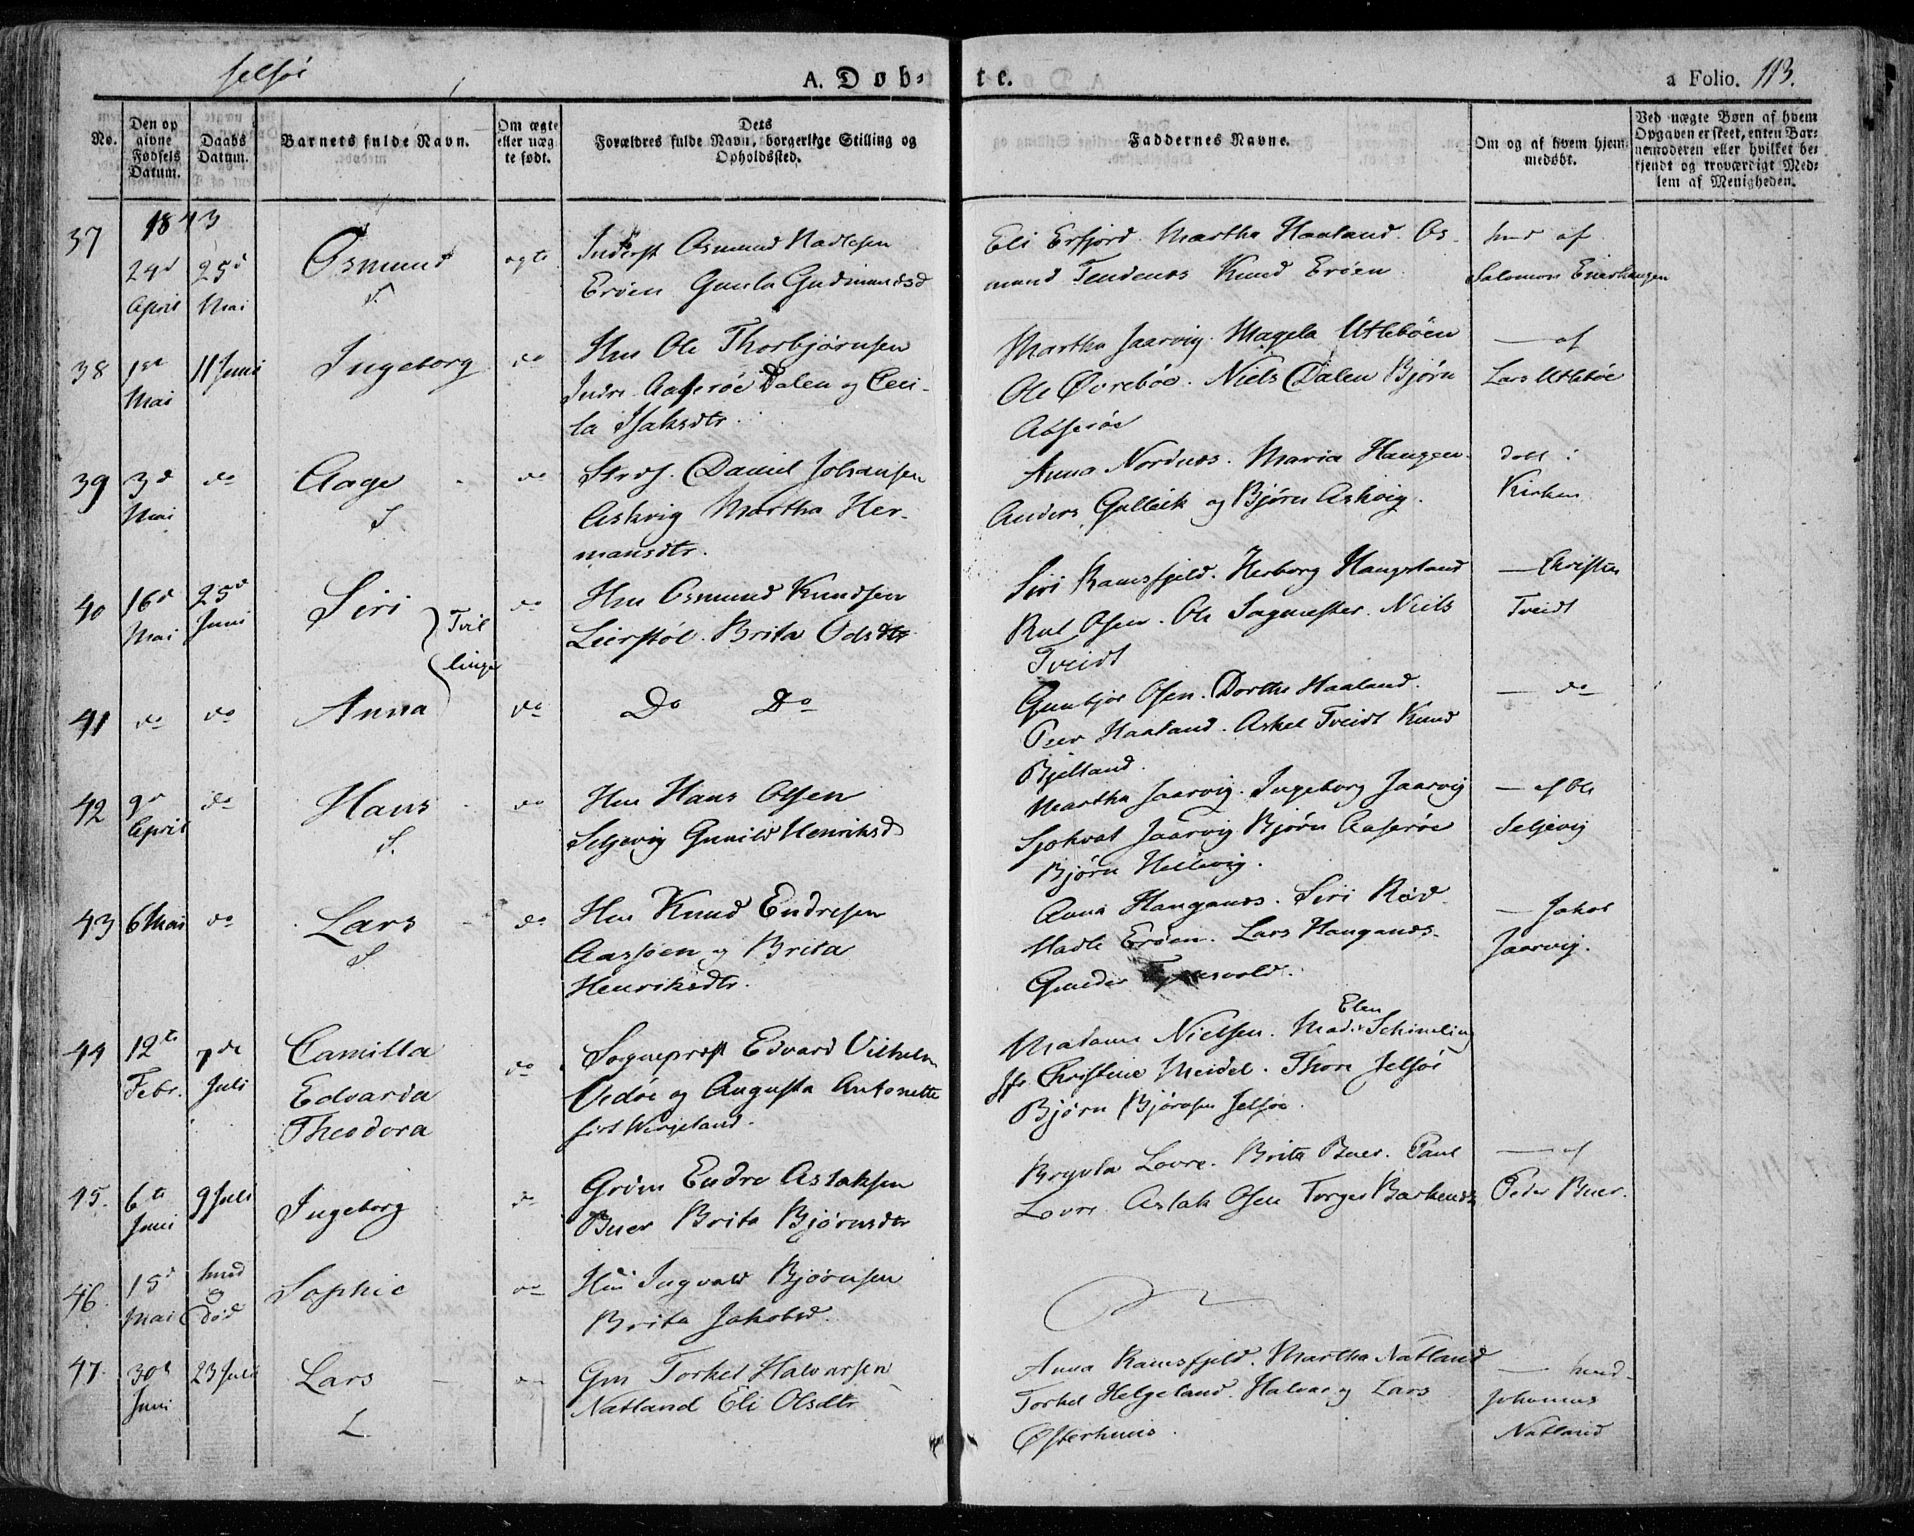 Jelsøe
A. Døb-
te.
a Folio. 113.
No.
Den op
givne
Fødsels
Datum.
Daabs
Datum.
Barnets fulde Navn.
Om ægte
eller uæg
te født.
Dets
Forældres fulde Navn, borgerlige Stilling og
Opholdssted.
Faddernes Navne.
Om og af hvem hjem-
medøbt.
Ved uægte Børn af hvem
Opgaven er skeet, enten Bar-
nemoderen eller hvilket be-
kjendt og troværdigt Med-
lem af Menigheden.
1843
37
24d
April
25d
Mai
Osmund
ægte
Inderst Osmund Hadlesen
Erøen Gunla Gudmundsd
Eli Erfjord. Martha Haaland. Os-
mund Tendenæs Knud Erøen
hmd af
Salomon
38
1ste
Mai
11 Juni
Ingeborg
do
Hm Ole Thorbjørnsen
Indre Aaserøe Dalen og Ceci-
la Isaksdtr.
Martha Jaarvig. Magela Utlebøen
Ole Øvrebøe. Niels Dalen Bjørn
Aaserøe
— af
Lars Utlebøe
39
3d
Mai
do
Aage
do
Strds. Daniel Johansen
Askvig Martha Her-
mansdtr.
Anna Nordnæs. Maria Haugen
Anders Gulleik og Bjørn Askvig.
døbt i
Kirken
40
16d
Mai
25d
Juni
Siri
Tvil
linger
do
Hm Osmund Knudsen
Leirstøl. Brita Odsdtr
Siri Ramsfjeld. Herborg Haugeland
Osen. Ole Sagmester. Niels
Tveidt
— Christen
Tveidt
41
do
do
Anna
do
Do Do
Gunbjør Osen. Dorthe Haaland.
Peer Haaland. Askel Tveidt Knud
Bjelland.
— do
42
9d
April
do
Hans
do
Hm Hans Olsen
Seljevig Gunild Henriksd
Martha Jaarvig. Ingeborg Jaarvig
Sjohvat Jaarvig Bjørn Aaserøe
Bjørn Hellevig.
— af Ole
Seljevig
43
6 Mai
do
Lars
do
Hm Knud Endresen
Aasøen og Brita
Henriksdtr.
Anna Hauganæs. Siri Rød
Hadle Erøen. Lars Hauganæs.
— Jakob
Jaarvig.
44
12te
Febr.
7de
Juli
Camilla
Edvarda
Theodora
do
Sogneprest Edvard Vilhelm
Vedøe og Augusta Antonette
født Wergeland.
Elen
Madame Nielsen. Mad. Schimeling
Jfr Christine Meidel. Thore Jelsøe
Bjørn Bjørnsen Jelsøe.
45.
6te
Juni
9 Juli
Ingeborg
do
Grdm Endre Aslaksen
Buer Brita Bjørnsdtr
Lovre. Brita Buer. Paul
Lovre. Aslak Osen Torger Barkenæs
— af
Peder Buer.
46.
15d
Mai
hmd
&
død
Sophie
do
Hm Ingvald Bjørnsen
Brita Jakobsd.
47.
30d
Juni
23 Juli
Lars
do
Gm Torkel Halvorsen
Natland Eli Olsdtr
Anna Ramsfjeld. Martha Natland
Torkel Helgeland. Halvor og Lars
Østerhuus.
— hmd.
Johannes
Natland